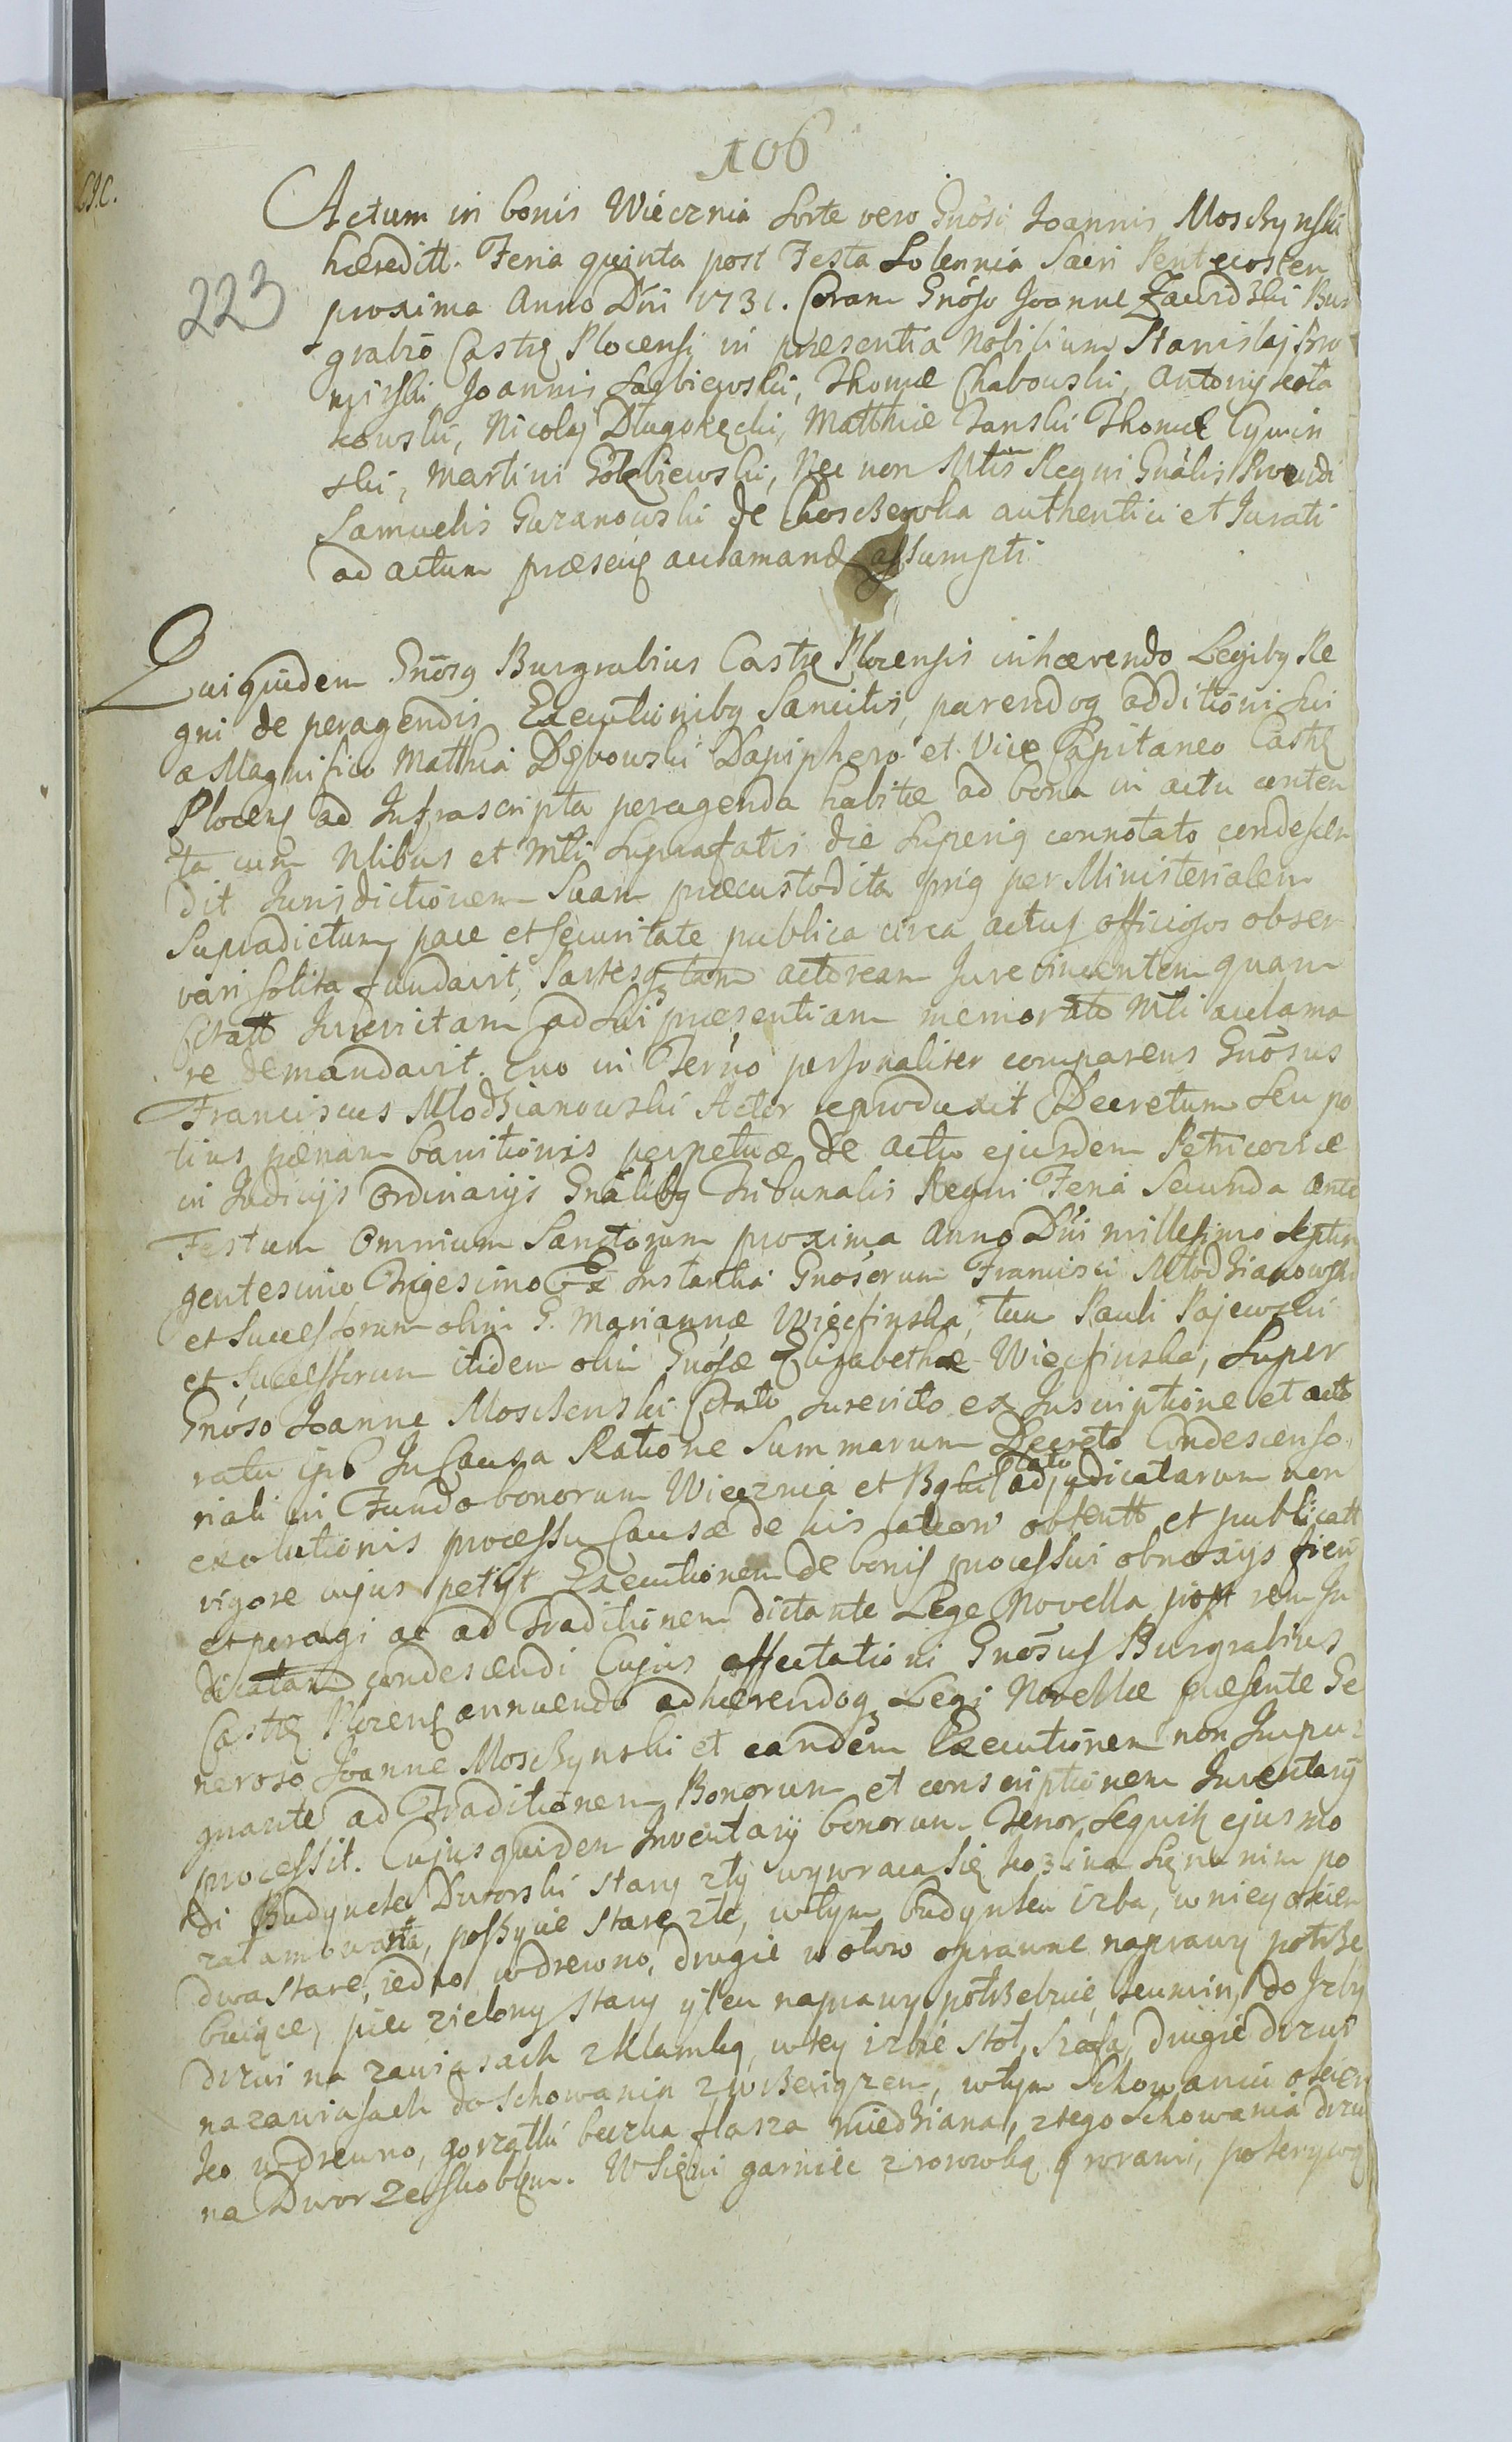 106
223
Actum in bonis Wiecznia Sorte vero Gnōsi Joannis Moschynski
hæreditt. Feria quinta post Festa Solennia Sacri Pentecostes
proxima Anno Dni 1731. Coram Gnōso Joanne Zawidzki Bur
grabīo Castrę Plocensi in præsentia Nobilium Stanislaj Bro
mirski Joannis Sarbiewski, Thomæ Chabowski, Antonij
kowski, Nicolaj Długokęcki, Matthiæ Janski Thomæ Cymin
ski, Martini Gołębiewski, Nec non Mtīs Regni Gnālis Providi
Samuelis Guzanowski de Choschewka authentici et Jurati
ad actum præsenę acclamand assumpti
Qui quidem Gnōsq Burgrabius Castrę Plocensis inhærendo Legibq Re
gni de peragendis Executionibq Sancitis, parendoq additioni sui
a Magnifico Matthia Dębowski Dapiphero et Vice Capitaneo Castrę
Plocenę ad Infrascripta peragenda habitæ ad bona in actu conten
ta cum Nlibus et Mtli Suprafatis die Superiq connotato condescen
dit Jurisdictionem Suam præcustodita priq per Ministerialem
Supradictum pace et securitate publica circa actus officiosos obser
vari solita fundavit, Partesq tam actoream Jurevincentem quam
Citatt Jurevictam ad sui præsentiam memorato Mtli acclama
re demandavit. Quo in Ferno personaliter comparens Gnōsus
Franciscus Młodzianowski Actor reproduxit Decretum seu po
tius pænam banitionis perpetuæ de actu ejusdem Petricoviæ
in Judicijs Ordinarijs Gnālibq Tribunalis Regni Feria Secunda ante
Festum Omnium Sanctorum proxima Anno Dni millesimo Septin
gentesimo Trigesimo Ex Instantia Gnosorum Francisci Młodzianowski
et Successorum olim G. Mariannæ Wiecfinska, tum Pauli Pajewski
et Successorum itidem olim Gnōsæ Elisabethæ Wiecfinska, Super
Gnōso Joanne Moschenski Citato Jurevicto ex Inscriptione et acto
ratu In Causa Ratione Summarum Decreto Condescenso
riali in Fundo bonorum Wiecznia et adjudicatarum non
exolutionis processu Causæ de his obtentt et publicatt
vigore cujus petijt Executionem de bonis processui obnoxijs fieri
et peragi ac ad Traditionem dictante Lege Novella post rem Ju
dicatam condescendi Cujus affectationi Gnōsus Burgrabius
Castrę Plocenę annuendo adhærendoq Legi Novellæ præsente Ge
neroso Joanne Moschynski et eandem Executionem non Impu
gnante ad Traditionem Bonorum et conscriptionem Inventarij
processit. Cujus quidem Inventarij bonorum Tenor Sequitę ejusmo
di Budynek Dworski stary zły wywraca się kozlina się na nim po
załamowała, poszycie stare złe, wtym budynku izba, wniey okien
dwa stare, iedno wdrewno, drugie wołow oprawne naprawy potrze
buiące, piec zielony stary y ten naprawy potrzebuie, kumin, do Jzby
drzwi na zawiasach zklamką, wtey izbie stoł, szafa, drugie drzwi
nazawiasach do schowania zwrzeciązem, wtym schowaniu okien
ko wdrewno, gorzałki beczka flasza miedziana, ztego schowania drzwi
na Dwor zeskoblem. WSieni garniec zrorowką y rorami, pokrywą